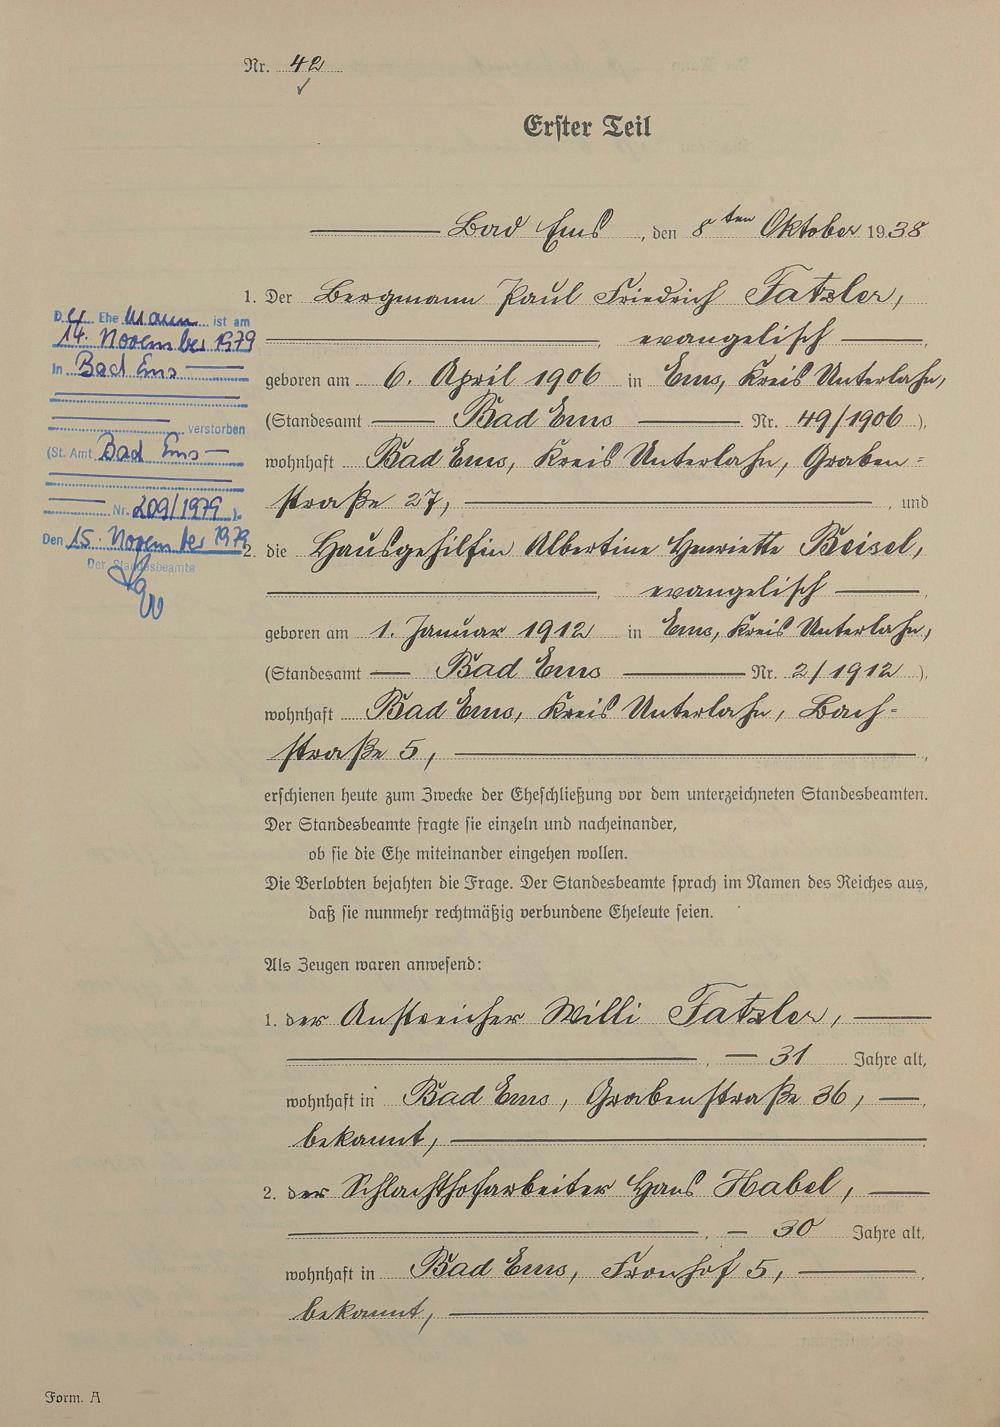 Nr. 42
Erster Teil
Bad Ems, den 8ten Oktober 1938
1. Der Bergmann Paul Friedrich Fatzler,
evangelisch
geboren am 6. April 1906 in Ems, Kreis Unterlahn,
(Standesamt Bad Ems Nr. 49/1906),
wohnhaft Bad Ems, Kreis Unterlahn, Graben=
straße 27, und
2. die Hausgehilfin Albertine Henriette Beisel,
evangelisch
geboren am 1. Januar 1912 in Ems, Kreis Unterlahn,
(Standesamt Bad Ems Nr. 2/1912),
wohnhaft Bad Ems, Kreis Unterlahn, Bach-
straße 5,
erschienen heute zum Zwecke der Eheschließung vor dem unterzeichneten Standesbeamten.
Der Standesbeamte fragte sie einzeln und nacheinander,
ob sie die Ehe miteinander eingehen wollen.
Die Verlobten bejahten die Frage. Der Standesbeamte sprach im Namen des Reiches aus,
daß sie nunmehr rechtmäßig verbundene Eheleute seien.
Als Zeugen waren anwesend:
1. der Anstreicher Willi Fatzler,
31 Jahre alt,
wohnhaft in Bad Ems, Grabenstraße 36,
bekannt,
2. der Schlachthofarbeiter Hans Habel,
30 Jahre alt,
wohnhaft in Bad Ems, Fronhof 5,
bekannt,
Der Ehe Mann ist am
14. November 1979
in Bad Ems
verstorben
(St. Amt Bad Ems
Nr. 209/1979).
Den 15. November 1979
Der Standesbeamte
Form. A